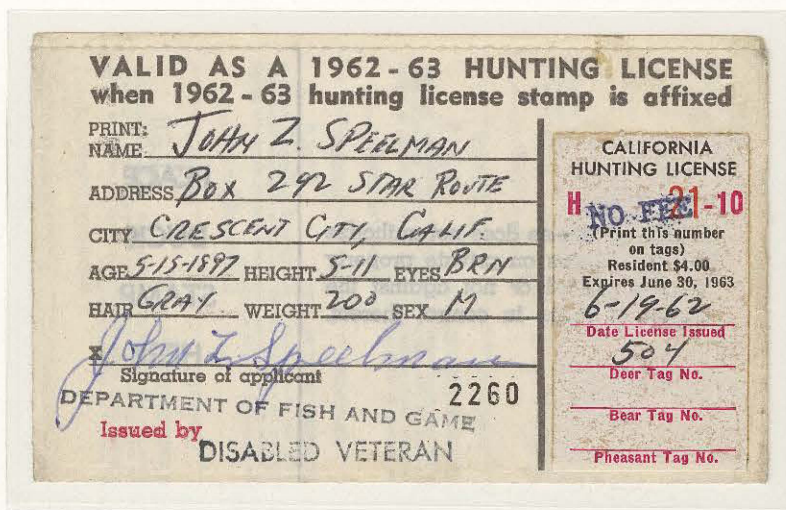 VALID AS A 1962-63 HUNTING LICENSE
when 1962-63 hunting license stamp is affixed
PRINT:
NAME JOHN Z. SPEELMAN
ADDRESS BOX 292 STAR ROUTE
CITY CRESCENT CITY, CALIF.
AGE 5-15-1897 HEIGHT 5-11 EYES BRN
HAIR GRAY WEIGHT 200 SEX M
X John Z. Speelman
Signature of applicant
2260
DEPARTMENT OF FISH AND GAME
Issued by
DISABLED VETERAN
CALIFORNIA
HUNTING LICENSE
H 21-10
NO FEE
(Print this number
on tags)
Resident $4.00
Expires June 30, 1963
6-19-62
Date License Issued
504
Deer Tag No.
Bear Tag No.
Pheasant Tag No.